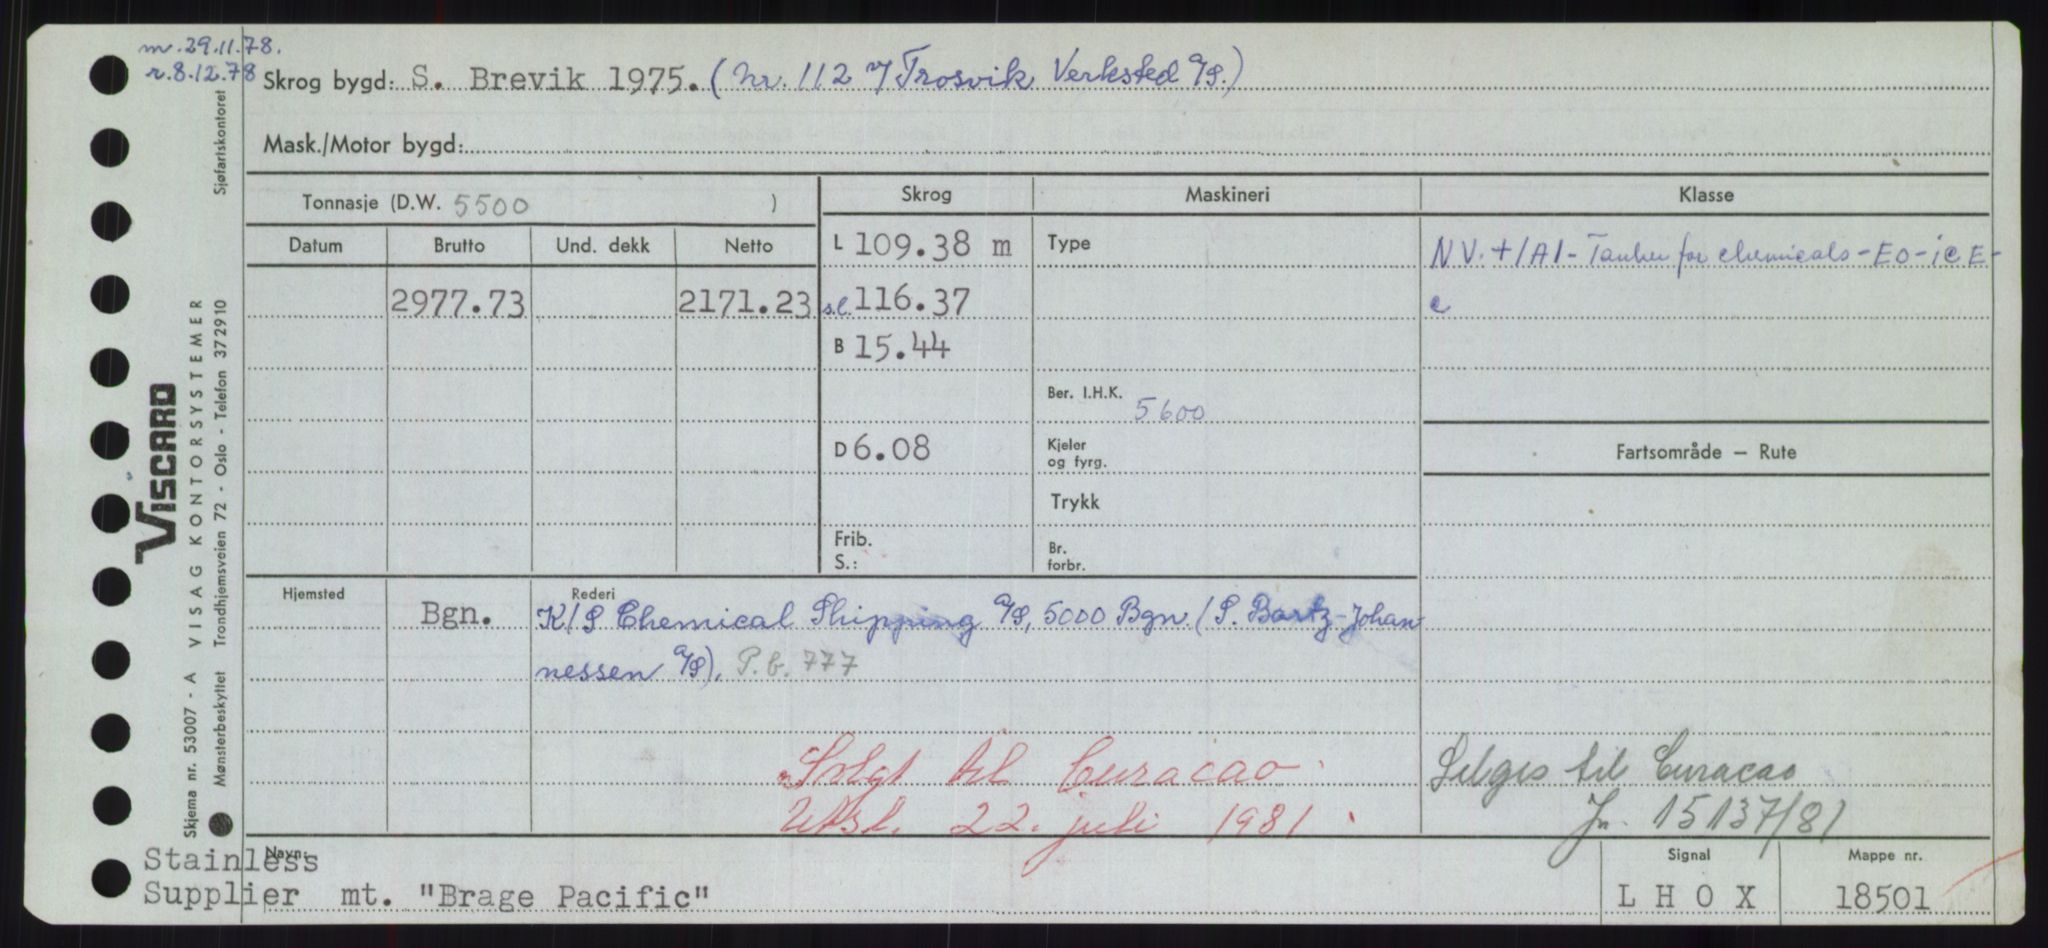 m. 29.11.78.
r. 8.12.78
Skrog bygd: S. Brevik 1975. (Nr. 112 v/ Trosvik Verksted A/S.)
Mask./Motor bygd:
Tonnasje (D.W. 5500 )
Skrog
Maskineri
Klasse
Datum
Brutto
Und. dekk
Netto
L 109.38 m
Type
NV. +1A1 - Tanker for chemicals - EO - ice E -
c
2977.73
2171.23
s.l. 116.37
B 15.44
Ber. I.H.K. 5600
D 6.08
Kjeler
og fyrg.
Fartsområde – Rute
Trykk
Frib.
S.:
Br.
forbr.
Hjemsted
Bgn.
Rederi
K/S Chemical Shipping A/S, 5000 Bgn. (S. Bartz-Johan
nessen A/S). P.b. 777
Solgt til Curacao.
Utsl. 22. juli 1981.
Selges til Curacao
Jn. 15137/81
Navn:
Stainless
Supplier mt. "Brage Pacific"
Signal
L H O X
Mappe nr.
18501
VISCARD
Skjema nr. 53007 - A VISAG KONTORSYSTEMER
Mønsterbeskyttet Trondhjemsveien 72 - Oslo - Telefon 372910 Sjøfartskontoret